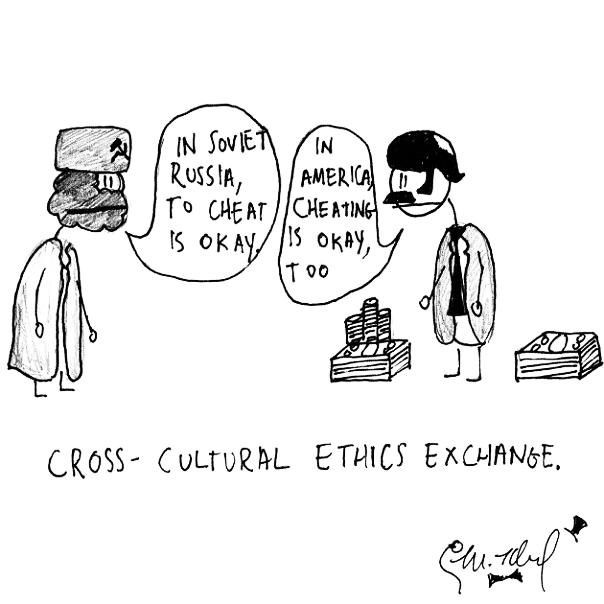 IN SOVIET
RUSSIA,
TO CHEAT
IS OKAY.
IN
AMERICA,
CHEATING
IS OKAY,
TOO
CROSS-CULTURAL ETHICS EXCHANGE.